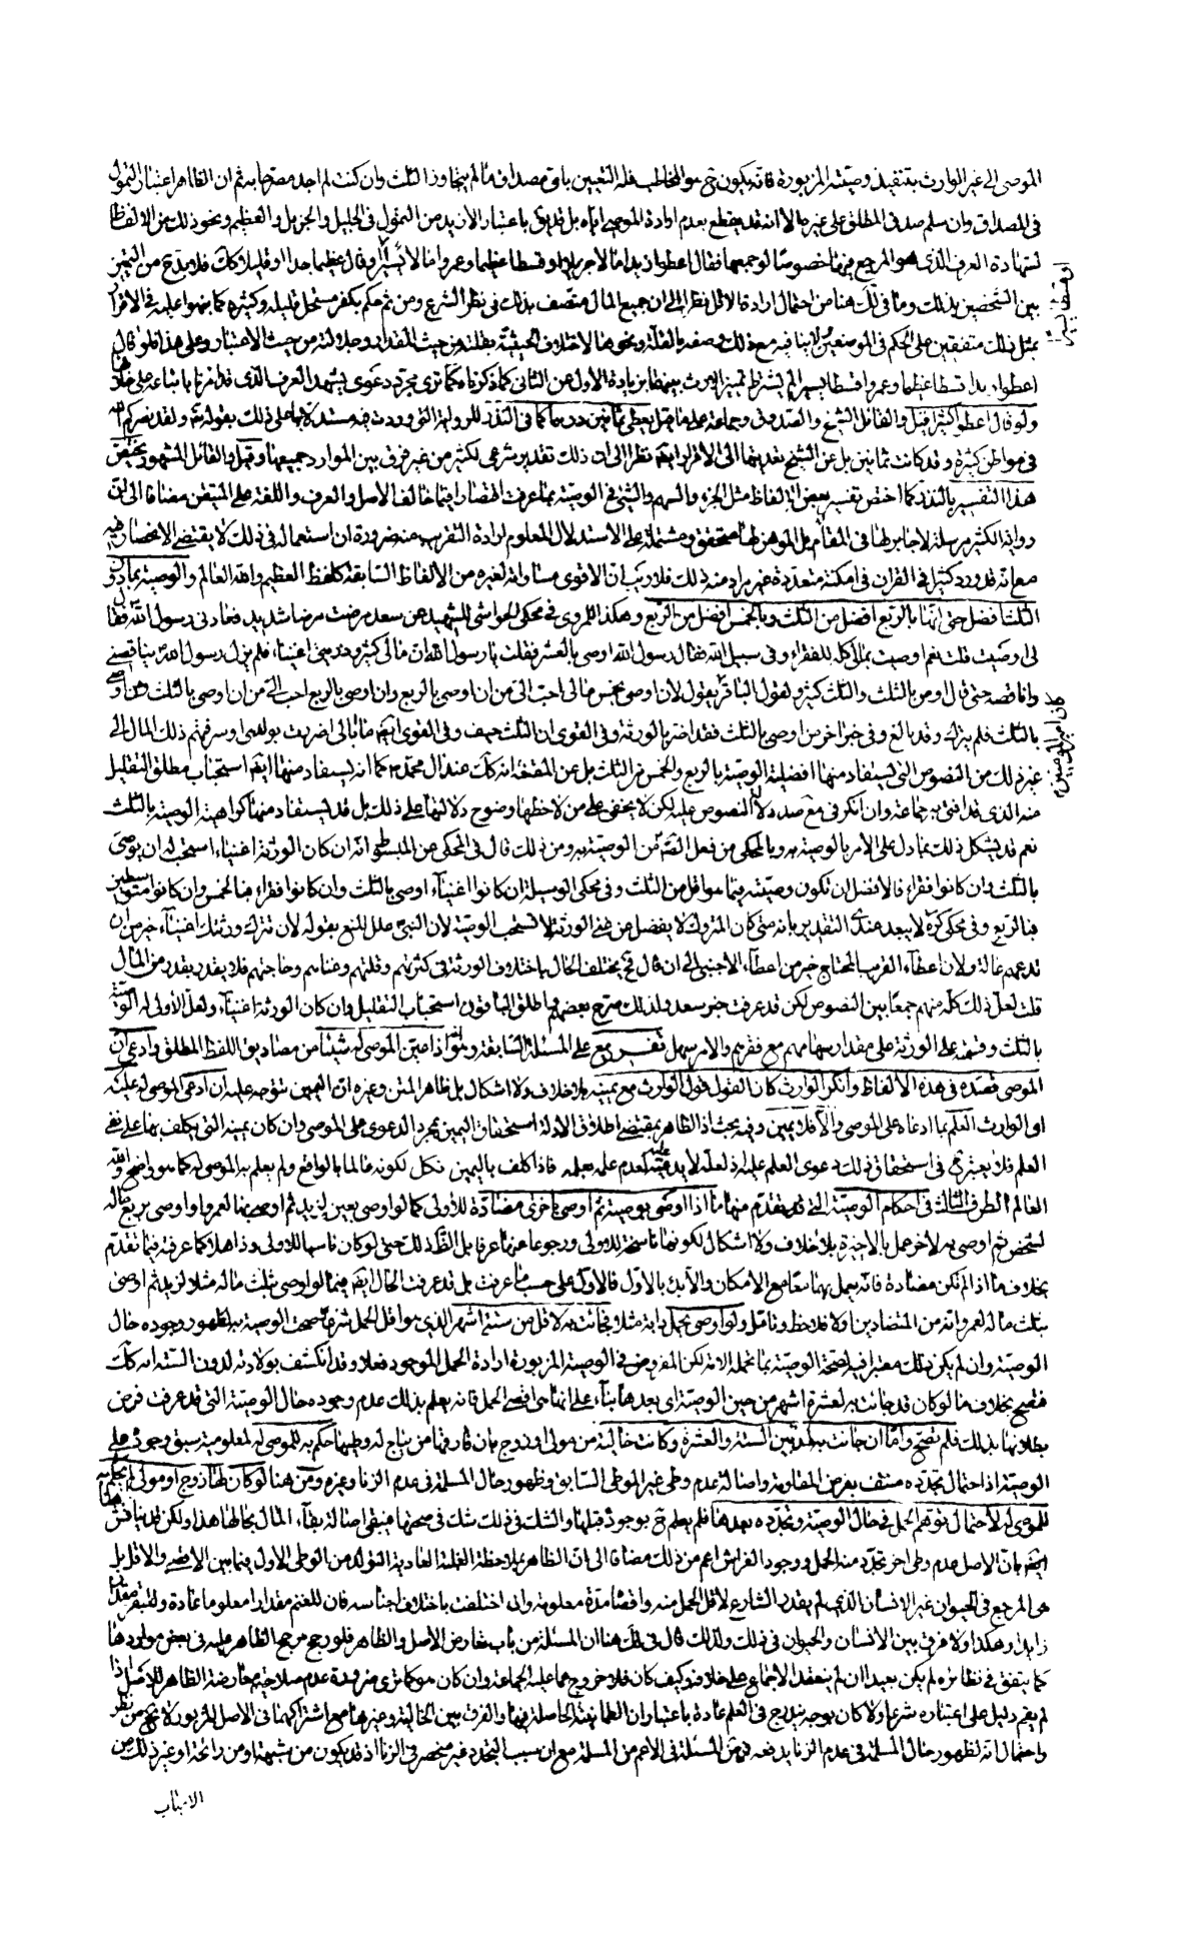 الموصى الى غير الوارث بتنفيذ وصيته المزبورة فانه يكون ح هو المخاطب فله التعيين باى مصداق ما لم يتجاوز الثلث وان كنت لم اجد مصرحا به ثم ان الظاهر اعتبار التمول
فى المصداق وان سلم صدق المطلق على غيره الا انه قد يقطع بعدم ارادة الموصى اياه بل قد يق باعتبار الازيد من التمول فى الجليل والجزيل والعظيم ونحو ذلك من الالفاظ
لشهادة العرف الذى هو المرجع فيها خصوصا لو جمعها فقال اعطوا زيدا مالا جزيلا او قسطا عظيما وعمروا مالا يسيرا وقال عظيما جدا او قليلا كك فلابد ح من التميز
بين الشخصين بذلك وما فى لك هنا من احتمال ارادة الاقل نظرا الى ان جميع المال متصف بذلك فى نظر الشرع ومن ثم حكم بكفر مستحل قليله وكثيره كما نبهوا عليه فى الاقرار
بمثل ذلك متفقين على الحكم فى الموضعين لا ينافيه مع ذلك وصفه بالقلة ونحوها لاختلاف الحيثية بقلته من حيث المقدار وجلالته من حيث الاعتبار وعلى هذا فلو قال
اعطوا زيدا قسطا عظيما وعمروا قسطا يسيرا لم يشترط تميز الوارث بينهما بزيادة الاول عن الثانى كما ذكرناه كما ترى مجرد دعوى يشهد العرف الذى قد امرنا باتباعه على خلافها
ولو قال اعطوه كثيرا قيل والقائل الشيخ والصدوق وجماعة على ما قيل يعطى ثمانين درهما كما فى النذر للرواية التى وردت فيه مستدلا بها على ذلك بقوله تعالى ولقد نصركم الله
فى مواطن كثيرة وقد كانت ثمانين بل عن الشيخ تعديتها الى الاقرار ايضا نظرا الى ان ذلك تقدير شرعى لكثير من غير فرق بين الموارد جميعها وقيل والقائل المشهور يختص
هذا التفسير بالنذر كما اختص تفسير بعض الالفاظ مثل الجزء والسهم والشئ فى الوصية بما عرفت اقتصارا فيما خالف الاصل والعرف واللغة على المتيقن مضافا الى ان
رواية الكثير مرسلة لا جابر لها فى المقام بل الموهن لها متحقق ومشتملة على الاستدلال المعلوم لارادة التقريب منه ضرورة ان استعماله فى ذلك لا يقتضى الانحصار فيه
مع انه قد ورد كثيرا فى القران فى امكنة متعددة غير مراد منه ذلك فلا ريب ان الاقوى مساواته لغيره من الالفاظ السابقة كلفظ العظيم والله العالم والوصية بما دون
الثلث افضل حتى انها بالربع افضل من الثلث وبالخمس افضل من الربع وهكذا المروى فى محكى الحواشى للشهيد عن سعد مرضت مرضا شديدا فعادنى رسول الله فقال
لى اوصيت قلت نعم اوصيت بمالى كله للفقراء وفى سبيل الله فقال رسول الله اوصى بالعشر فقلت يا رسول الله ان مالى كثير وذريتى اغنياء فلم يزل رسول الله يناقصنى
واناقصه حتى قال اوص بالثلث والثلث كثير ولقول الباقر يقول لان اوصى بخمس مالى احب الى من ان اوصى بالربع وان اوصى بالربع احب الى من ان اوصى بالثلث ومن اوصى
بالثلث فلم يترك وقد بالغ وفى خبر اخر من اوصى بالثلث فقد اضر بالورثة وفى القوى ان الثلث حيف وفى القوى ايضا ما ابالى اضررت بولدى او سرقتهم ذلك المال الى
غير ذلك من النصوص التى يستفاد منها افضلية الوصية بالربع والخمس من الثلث بل عن المقنعة انه كك عند ال محمد كما انه يستفاد منها ايضا استحباب مطلق التقليل
منه الذى قد افتى به جماعة وان انكر فى مع صد دلالة النصوص عليه لكن لا يخفى على من لاحظها وضوح دلالتها على ذلك بل قد يستفاد منها كراهية الوصية بالثلث
نعم قد يشكل ذلك بما دل على الامر بالوصية به وبالمحكى من فعل الائمة من الوصية به ومن ذلك قال فى المحكى من المبسوط انه ان كان الورثة اغنياء استحب له ان يوصى
بالثلث وان كانوا فقراء فالافضل ان تكون وصيته فيما هو اقل من الثلث وفى محكى الوسيلة ان كانوا اغنياء اوصى بالثلث وان كانوا فقراء فبالخمس وان كانوا متوسطين
فبالربع وفى محكى كره لا يبعد عندى التقدير بانه متى كان المتروك لا يفضل من غنى الورثة لا تستحب الوصية لان النبى علل المنع بقوله لان تترك ورثتك اغنياء خير من ان
تدعهم عالة ولان اعطاء القريب المحتاج خير من اعطاء الاجنبى الى ان قال فح يختلف الحال باختلاف الورثة فى كثرتهم وقلتهم وغناهم وحاجتهم فلا يقدر بقدر من المال
قلت لعل ذلك كله منهم جمعا بين النصوص لكن قد عرفت خبر سعد ولذلك صرح بعضهم واطلق الباقون استحباب التقليل وان كان الورثة اغنياء ولعل الاولى له الوصية
بالثلث وقسمته على الورثة على مقدار سهامهم مع فقرهم والامر سهل تفريع على المسئلة السابقة وهو اذا عين الموصى له شيئا من مصاديق اللفظ المطلق وادعى ان
الموصى قصده فى هذه الالفاظ وانكر الوارث كان القول قول الوارث مع يمينه بلا خلاف ولا اشكال بل ظاهر المتن وغيره ان اليمين تتوجه عليه ان ادعى الموصى له عليه
او الوارث العلم بما ادعاه على الموصى والا فلا يمين وفيه بحث اذ الظاهر بمقتضى اطلاق الادلة استحقاق اليمين بمجرد الدعوى على الموصى وان كان يمينه التى يكلف بها على نفى
العلم فلا يعتبر ح فى استحقاق ذلك دعوى العلم عليه اذ لعله لا يدعيه لعدم علمه بعلمه فاذا كلف باليمين نكل لكونه عالما بالواقع ولم يعلم به الموصى له كما هو واضح والله
العالم الطرف الثالث فى احكام الوصية التى قد تقدم منها ما اذا اوصى بوصية ثم اوصى باخرى مضادة للاولى كما لو اوصى بعين لزيد ثم اوصى بها لعمرو او اوصى بربع ماله
لشخص ثم اوصى به لاخر عمل بالاخيرة بلا خلاف ولا اشكال لكونها ناسخة للاولى ورجوعا عنها عرفا بل الظ ذلك حتى لو كان ناسيا للاولى وذاهلا كما عرفته فيما تقدم
بخلاف ما اذا لم تكن مضادة فانه يعمل بهما معا مع الامكان والا بدئ بالاول فالاول على حسب ما عرفت بل قد عرفت الحال ايضا فيما لو اوصى بثلث ماله مثلا لزيد ثم اوصى
بثلث ماله لعمرو انه من المتضادين او لا فلاحظ وتامل ولو اوصى بحمل دابة مثلا وجائت به لاقل من ستة اشهر الذى هو اقل الحمل شرعا صحت الوصية به لظهور وجوده حال
الوصية وان لم يكن ذلك معتبرا فى صحة الوصية بما تحمله الامة لكن المفروض فى الوصية المزبورة ارادة الحمل الموجود فعلا وقد انكشف بولادته لدون الستة انه كك
فتصح بخلاف ما لو كان قد جائت به لعشرة اشهر من حين الوصية اى بعدها بناء على انها اقصى الحمل فانه يعلم بذلك عدم وجوده حال الوصية التى قد عرفت فرض
بطلانها بذلك فلم تصح واما ان جائت به لمدة بين الستة والعشرة وكانت خالية من مولى وزوج بان فارقها من يباح له وطيها حكم به للموصى له لمعلومية سبق وجوده على
الوصية اذ احتمال تجدده منتف بفرض المفارقة واصالة عدم وطى غير الموطى السابق وظهور حال المسلمة فى عدم الزنا وغيره ومن هنا لو كان لها زوج او مولى لم يحكم به
للموصى له لاحتمال توهم الحمل فى حال الوصية وتجدده بعدها فلم يعلم ح بوجوده قبلها والشك فى ذلك شك فى صحتها فتبقى اصالة بقاء المال بحالها هذا ولكن قد يناقش
ايضا بان الاصل عدم وطى اخر تجدد منه الحمل ووجود الفراش اعم من ذلك مضافا الى ان الظاهر بملاحظة الغلبة العادية التولد من الوطى الاول فيما بين الاقصى والاقل بل
هو المرجع فى الحيوان غير الانسان الذى لم يقدر الشارع لاقل الحمل منه واقصاه مدة معلومة وانه اختلفت باختلاف اجناسه فان للغنم مقدارا معلوما عادة وللبقر مقدارا
زايدا وهكذا ولا فرق بين الانسان والحيوان فى ذلك ولذلك قال فى لك هنا ان المسئلة من باب تعارض الاصل والظاهر فلو رجح مرجح الظاهر عليه فى بعض موارده
كما يتفق فى نظائره لم يكن بعيدا ان لم ينعقد الاجماع على خلافه وكيف كان فلا خروج عما عليه الجماعة وان كان هو كما ترى ضرورة عدم صلاحية معارضة الظاهر للاصل اذا
لم يقم دليل على اعتباره شرعا ولا كان بوجه يندرج فى العلم عادة باعتبار ان الطمانينة الحاصلة فيها والفرق بين الخالية وغيرها مع اشتراكهما فى الاصل المزبور لا يخ من نظر
واحتمال انه لظهور حال المسلمة فى عدم الزنا يدفعه فرض المسئلة فى الاعم من المسلمة مع ان سبب التجدد غير منحصر فى الزنا اذ قد يكون من شبهة او من رائحة او غير ذلك من
الاسباب
كان امير المؤمنين